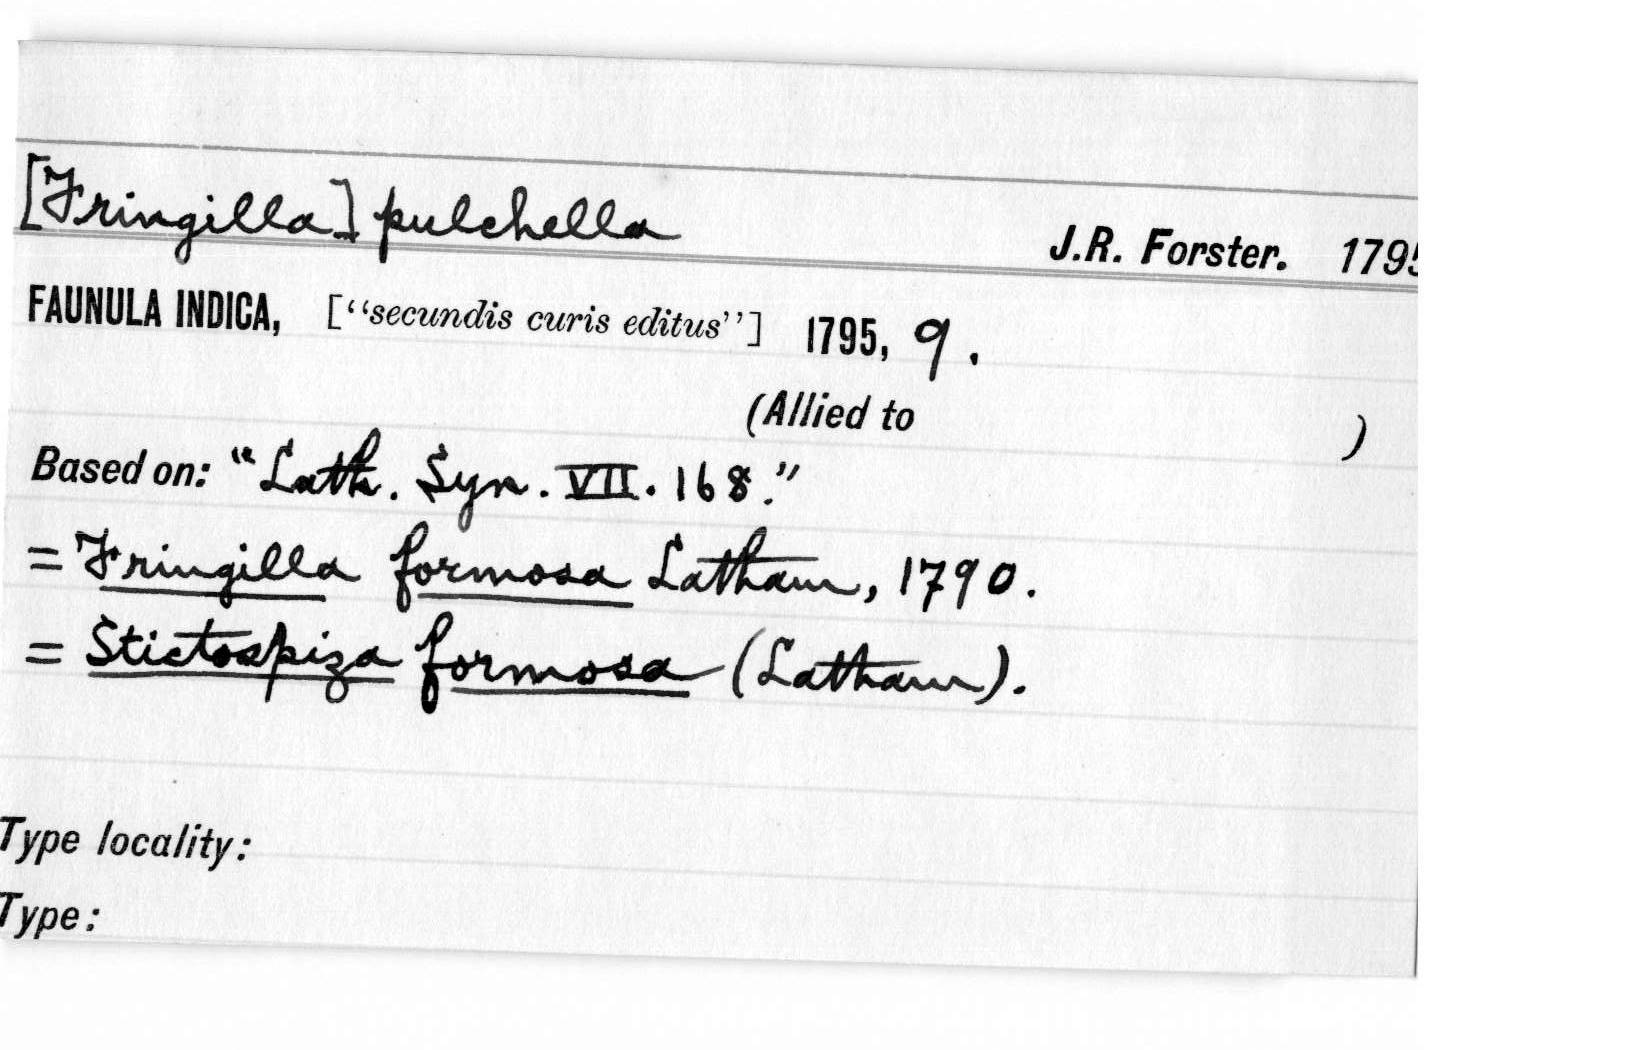 [Fringilla] pulchella
J.R. Forster. 1795
FAUNULA INDICA, ["secundis curis editus"] 1795, 9.
(Allied to )
Based on: "Lath. Syn. VII. 168."
= Fringilla formosa Latham, 1790.
= Stictospiza formosa (Latham).
Type locality:
Type: